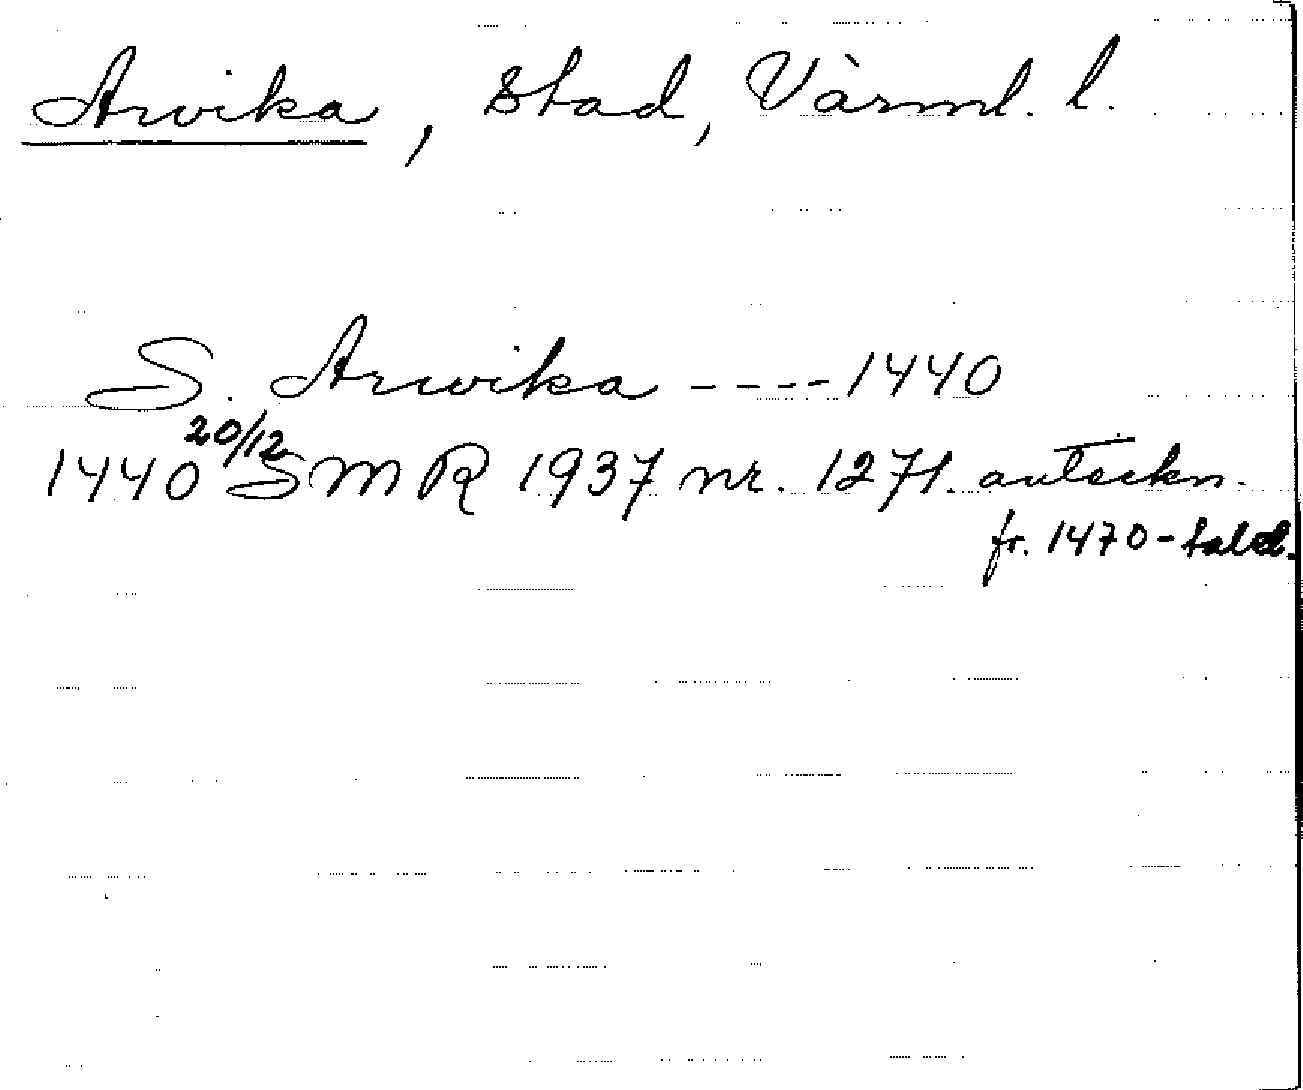 Arvika, stad, Värml. l.
S. Arwika ---- 1440
1440 20/12 SMR 1937 nr. 1271. anteckn.
fr. 1470-talet.